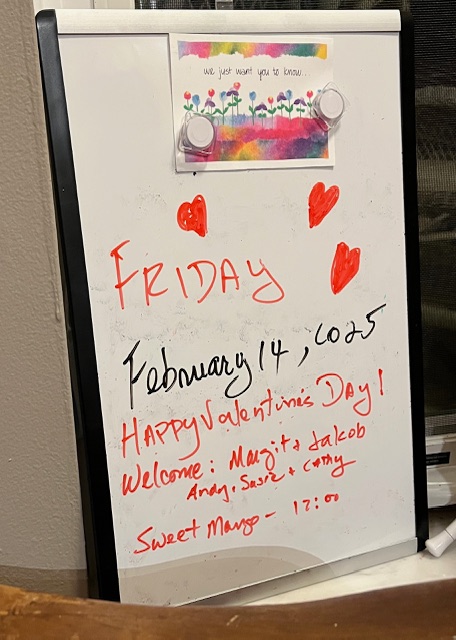 we just want you to know...
FRIDAY
February 14, 2025
HAPPY Valentine's DAY!
Welcome: Margit + Jakob
Andy, Susie + Cathy
Sweet Mango - 17:00